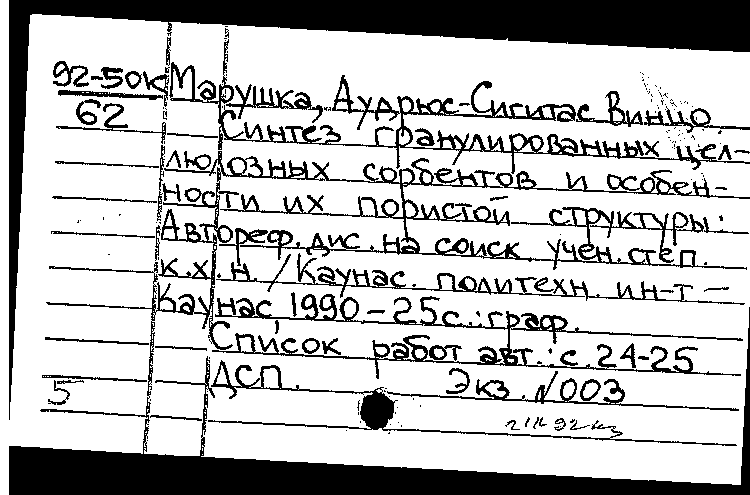 92-50к Марушка, Аудрюс-Сигитас Винцо
62
Синтез гранулированных цел-
люлозных сорбентов и особен-
ности их пористой структуры:
Автореф. дис. на соиск. учен. степ.
к.х.н. / Каунас. политехн. ин-т –
Каунас, 1990 – 25с.: граф.
Список работ авт.: с. 24-25
ДСП. Экз. №003
5